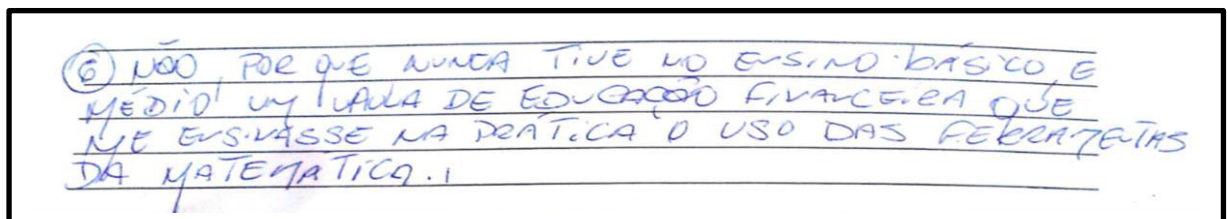 6 NÃO, POR QUE NUNCA TIVE NO ENSINO BÁSICO, E
MÉDIO UM AULA DE EDUCAÇÃO FINANCEIRA QUE
ME ENSINASSE NA PRÁTICA O USO DAS FERRAMENTAS
DA MATEMÁTICA.